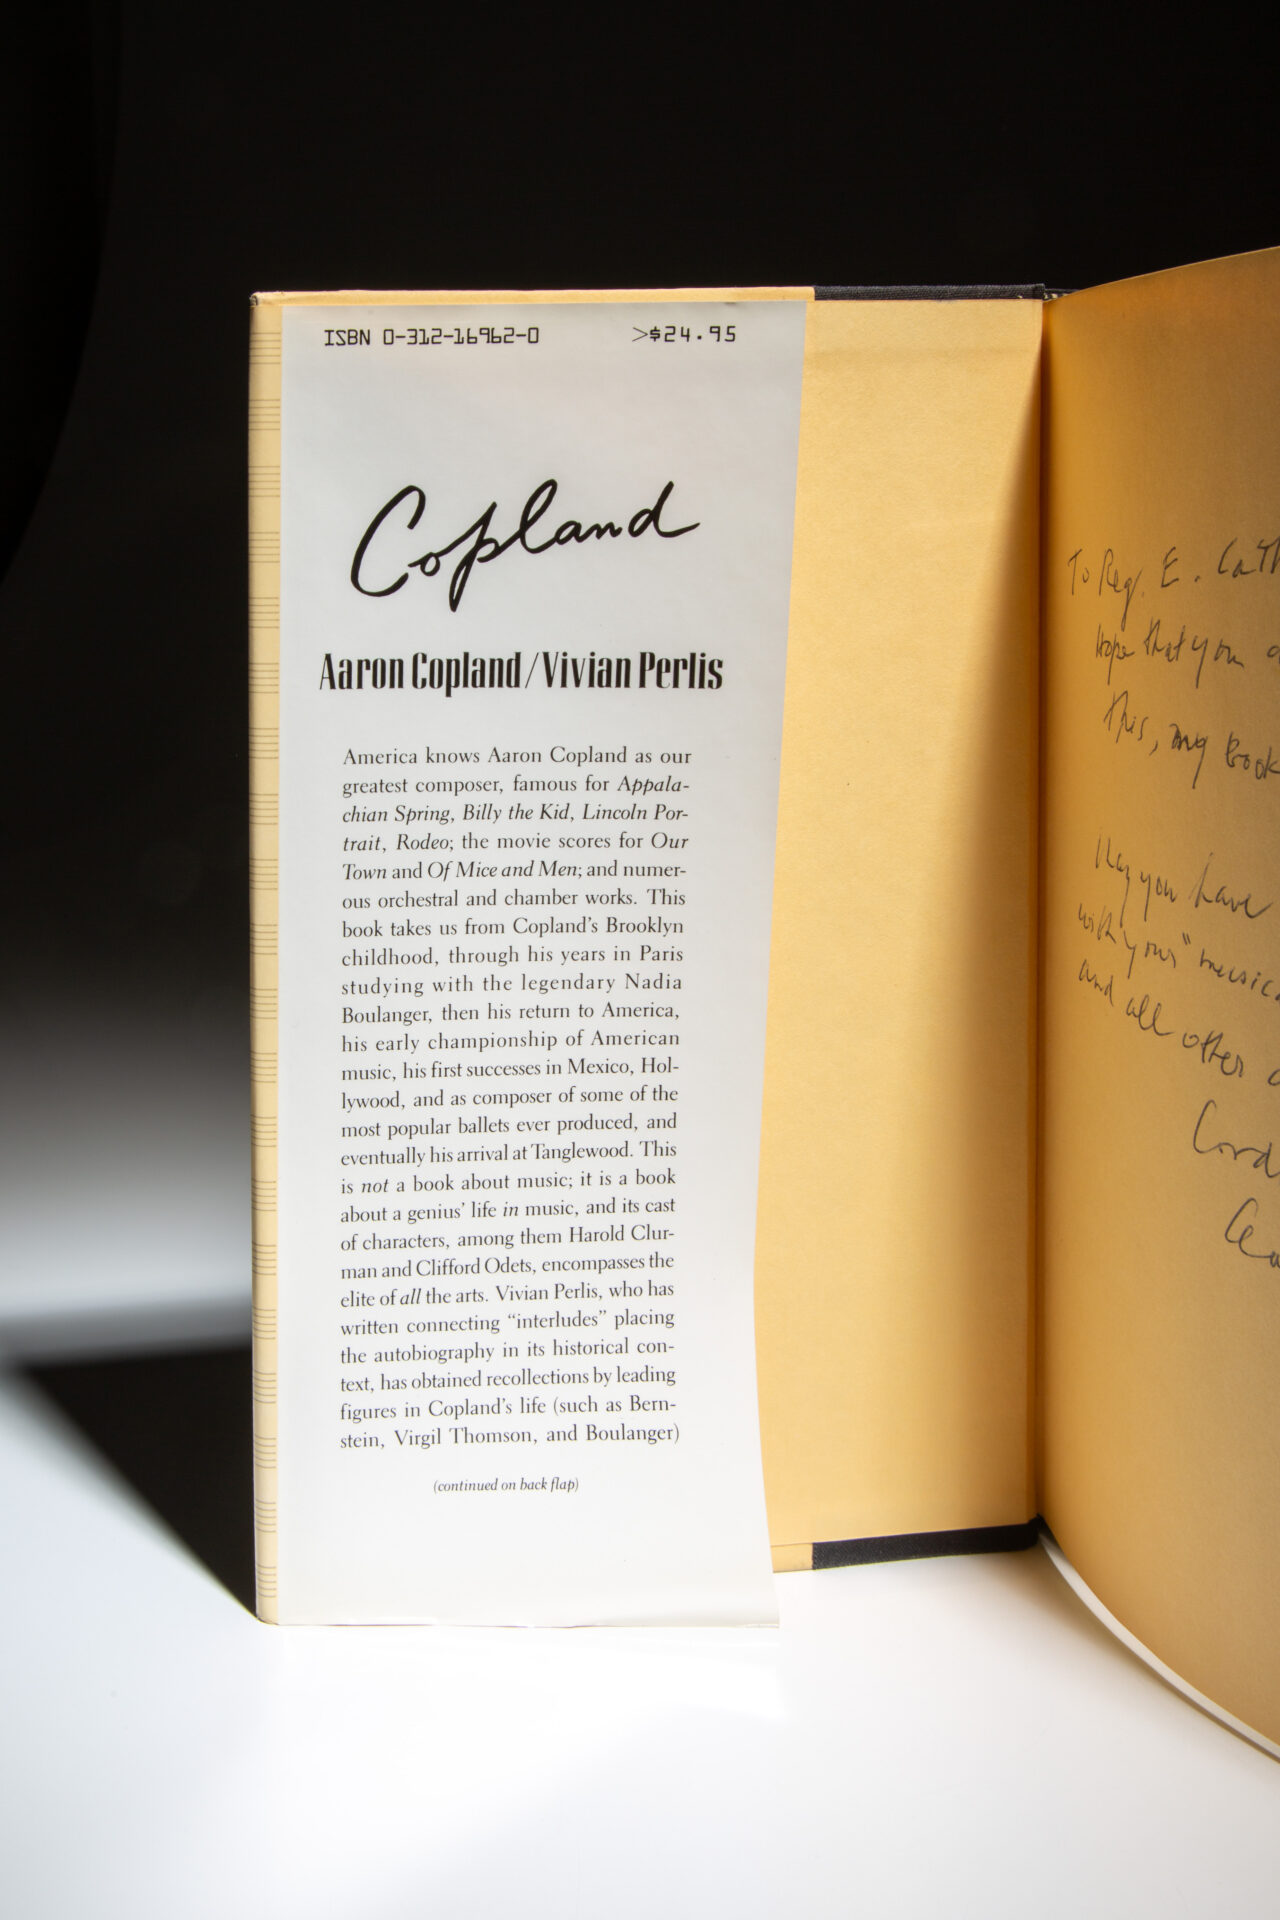 ISBN 0-312-16962-0 >$24.95
Copland
Aaron Copland/Vivian Perlis
America knows Aaron Copland as our
greatest composer, famous for Appala-
chian Spring, Billy the Kid, Lincoln Por-
trait, Rodeo; the movie scores for Our
Town and Of Mice and Men; and numer-
ous orchestral and chamber works. This
book takes us from Copland's Brooklyn
childhood, through his years in Paris
studying with the legendary Nadia
Boulanger, then his return to America,
his early championship of American
music, his first successes in Mexico, Hol-
lywood, and as composer of some of the
most popular ballets ever produced, and
eventually his arrival at Tanglewood. This
is not a book about music; it is a book
about a genius' life in music, and its cast
of characters, among them Harold Clur-
man and Clifford Odets, encompasses the
elite of all the arts. Vivian Perlis, who has
written connecting “interludes” placing
the autobiography in its historical con-
text, has obtained recollections by leading
figures in Copland's life (such as Bern-
stein, Virgil Thomson, and Boulanger)
(continued on back flap)
To Reg. E. Cath
Hope that you
this, my book
May you have
with your "musica
and all other
Cord